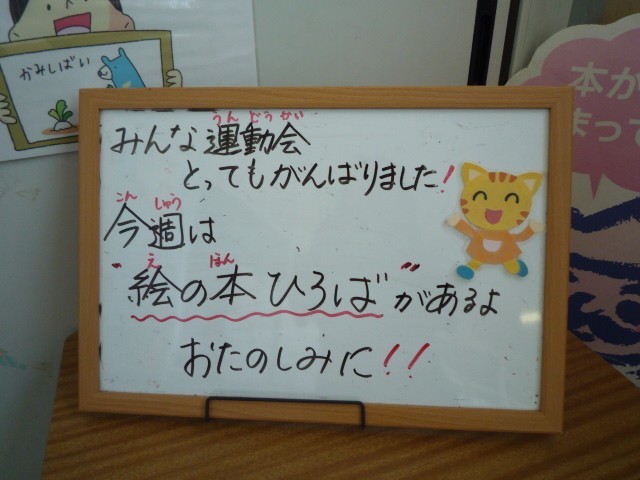 かみしばい
本が
まって
うんどうかい
みんな運動会
とってもがんばりました!
こん しゅう
今週は
え ほん
"絵の本ひろば"があるよ
おたのしみに!!